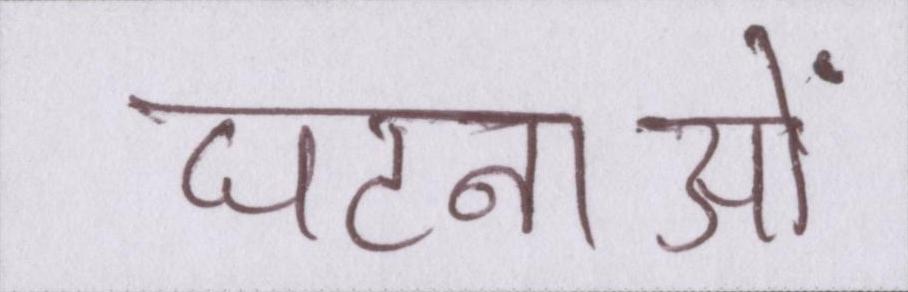 घटनाओं